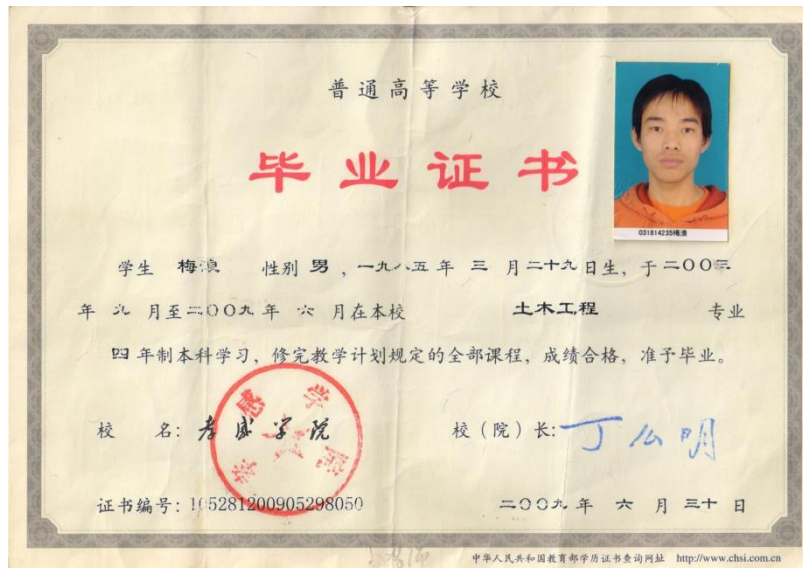 普通高等学校
毕业证书
031814235梅浪
学生 梅浪 性别 男 ，一九八五年 三 月二十九日生，于二〇〇三
年 九 月至二〇〇九年 六 月在本校 土木工程 专业
四 年制本科学习，修完教学计划规定的全部课程，成绩合格，准予毕业。
校 名：孝感学院
孝感学院
校（院）长：丁么明
证书编号：105281200905298050
二〇〇九年 六 月 三十 日
中华人民共和国教育部学历证书查询网址 http://www.chsi.com.cn